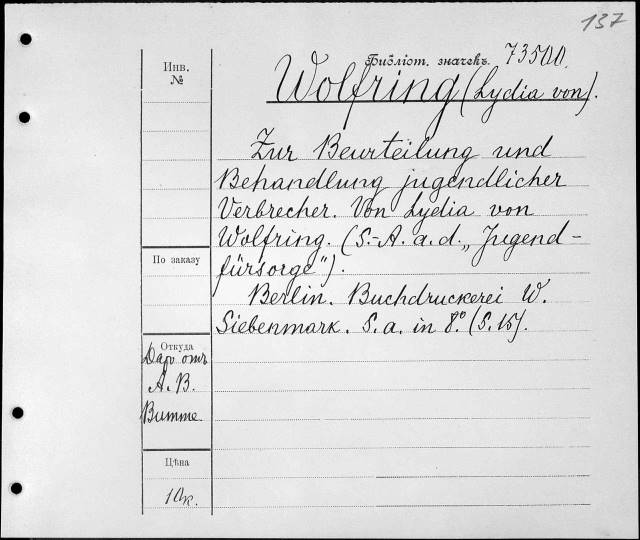 137
Инв.
№
Библіот. значекъ. 73500.
Wolfring (Lydia von).
Zur Beurteilung und
Behandlung jugendlicher
Verbrecher. Von Lydia von
Wolfring. (S.-A. a. d. „Jugend-
fürsorge").
Berlin. Buchdruckerei W.
Siebenmark. S. a. in 8.° (S. 15).
По заказу
Откуда
Даръ отъ
А. В.
Витте.
Цѣна
10к.